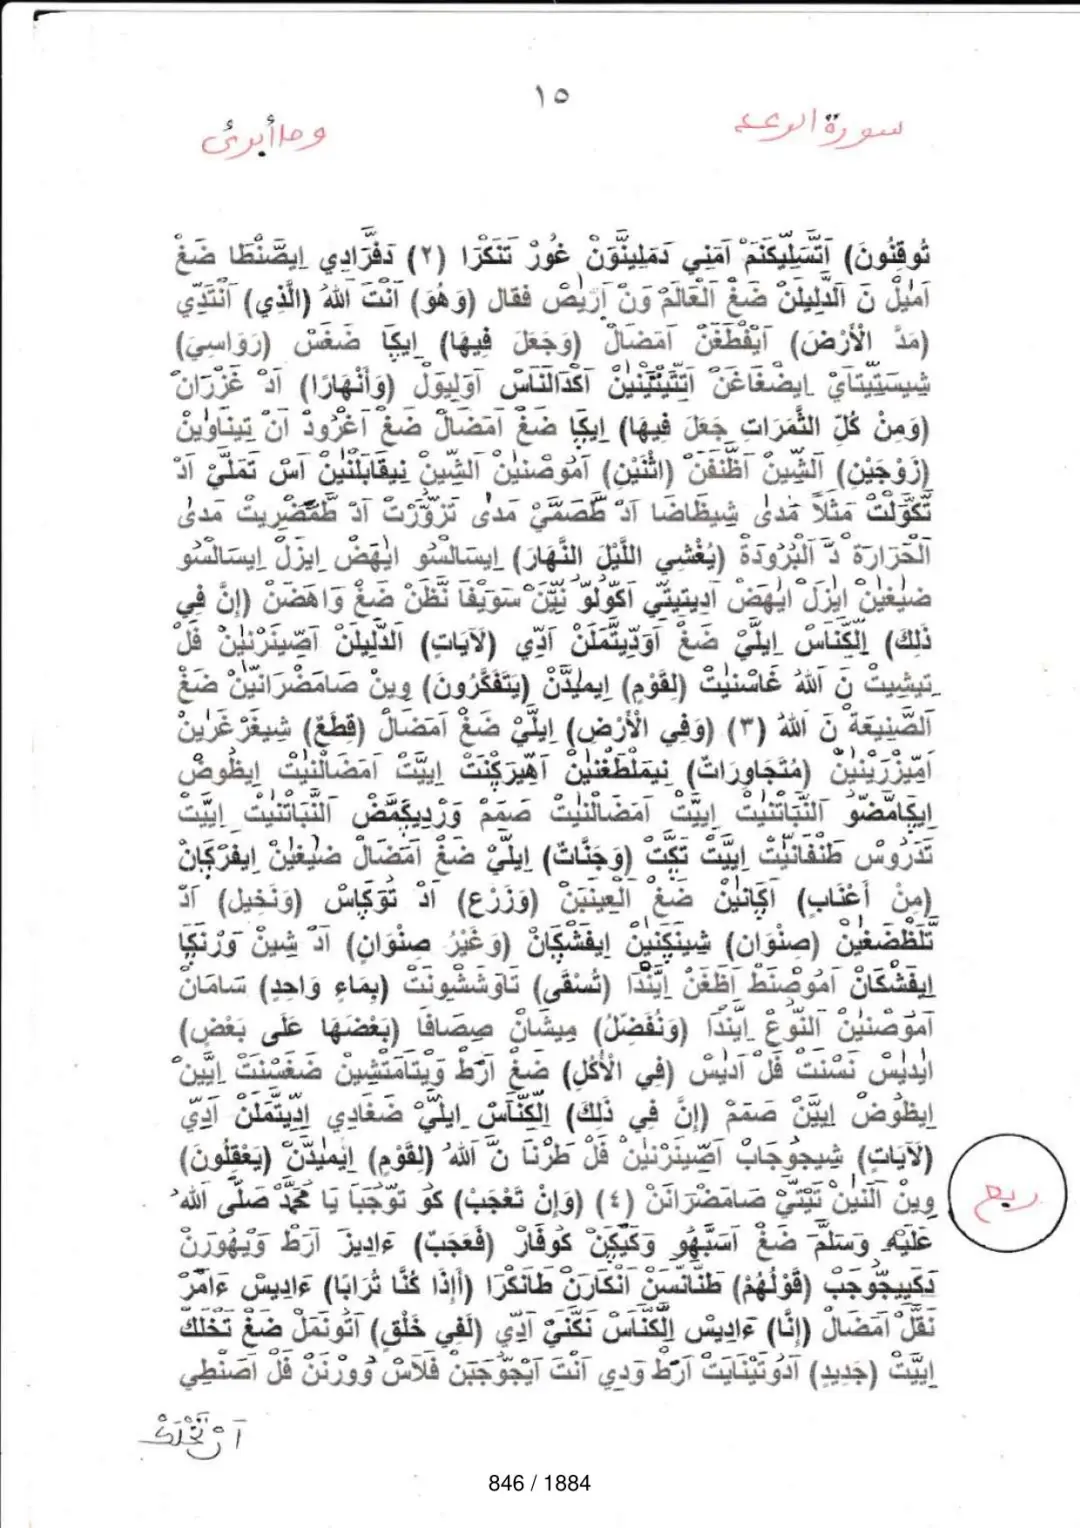 ١٥
سورة الرعد
وما أبرئ
تُوقِنُونَ) اَتَّسَلِيكَنَمْ اَمَنِي دَمَلِينَّوَنْ غُورْ تَنَكْرَا (٢) دَفَّرَادِي اِيصَّنْطَا ضَغْ
اَمَيْلْ نَ اَلدَّلِيلَنْ ضَغْ اَلْعَالَمْ وَنْ اَرَيْضْ فقال (وَهُوَ) اَنْتَ اللهُ (الَّذِي) اَنْتَدِّي
(مَدَّ الْأَرْضَ) اَيْفْطَغَنْ اَمَضَالْ (وَجَعَلَ فِيهَا) اِيكَا ضَغَسْ (رَوَاسِيَ)
شِيسَتِيتَايْ اِيضْغَاغَنْ اَتِّتِيتَنِينْ اَكْدَالنَاسْ اَوَلِيوَلْ (وَأَنْهَارًا) اَدْ غَزْرَانْ
(وَمِنْ كُلِّ الثَّمَرَاتِ جَعَلَ فِيهَا) اِيكَا ضَغْ اَمَضَالْ ضَغْ اَغْرُودْ اَنْ تِينَاوِينْ
(زَوْجَيْنِ) اَلشِّينْ اَظَّنَفَنْ (اثْنَيْنِ) اَمُوصْنِينْ اَلشِّينْ نِيقَابَلْنِينْ اَسْ تَمَلَّيْ اَدْ
تَّكَوَّلْتْ مَثَلًا مَدَى شِيظَاضَا اَدْ طَّصَمَّيْ مَدَى تَزَوَّرْتْ اَدْ طَّمَضْرِيتْ مَدَى
اَلْحَرَارَةْ دَ اَلْبُرُودَةْ (يُغْشِي اللَّيْلَ النَّهَارَ) اِيسَالْسُو ايَهَضْ اِيزَلْ اِيسَالْسُو
ضِيغِينْ ايَزَلْ ايَهَضْ اَدِيتِيتِّي اَكُولُو نَيَّنْ سَوِيفَا نَظَّنْ ضَغْ وَاهَضَنْ (إِنَّ فِي
ذَلِكَ) اِلْكَنَاسْ اِيلَيْ ضَغْ اَوَدِّيتَّمَلَنْ اَدِّي (لَآيَاتٍ) اَلدَّلِيلَنْ اَصَّيَنْرَنِينْ فَلْ
تِيشِيتْ نَ اللهْ غَاسْنِيتْ (لِقَوْمٍ) اِيمِيدَّنْ (يَتَفَكَّرُونَ) وِينْ صَامَضْرَانِينْ ضَغْ
اَلصَّنِيعَةْ نَ اللهْ (٣) (وَفِي الْأَرْضِ) اِيلَيْ ضَغْ اَمَضَالْ (قِطَعٌ) شِيغَرْغَرِينْ
اَمِيزْرَيْنِينْ (مُتَجَاوِرَاتٌ) نِيمَلْطَغْنِينْ اَهِيرَكَنْتْ اِييَّتْ اَمَضَالْنِيتْ اِيظُوضْ
اِيكَامَضُو اَلنَّبَاتْنِيتْ اِييَّتْ اَمَضَالْنِيتْ صَمَمْ وَرْدِيكَمَّضْ اَلنَّبَاتَنِيتْ اِييَّتْ
تَدَرُوسْ طَنْفَانَيْتْ اِييَّتْ تَكَّتْ (وَجَنَّاتٌ) اِيلَيْ ضَغْ اَمَضَالْ ضِيغِينْ اِيفَرْكَانْ
(مِنْ أَعْنَابٍ) اَكَانِينْ ضَغْ اَلْعِينَبَنْ (وَزَرْعٌ) اَدْ تُوكَاسْ (وَنَخِيلٌ) اَدْ
تَّلَظْضَغِينْ (صِنْوَانٌ) شِينَكِنِينْ اِيفَشْكَانْ (وَغَيْرُ صِنْوَانٍ) اَدْ شِينْ وَرْنَكَا
اِيفَشْكَانْ اَمُوصْنَطْ اَظَّغَنْ اِيَّنْدَا (تُسْقَى) تَاوَشَشْوِنَتْ (بِمَاءٍ وَاحِدٍ) سَامَانْ
اَمُوصْنِينْ اَلنَّوْعْ اِيَّنْدَا (وَنُفَضِّلُ) مِيشَانْ صِصَافَا (بَعْضَهَا عَلَى بَعْضٍ)
ايَدِيسْ نَسْنَتْ فَلْ اَدِيسْ (فِي الْأُكُلِ) ضَغْ اَرَطْ وَيْتَامَتْشِينْ ضَغْسْنَتْ اِيَّينْ
اِيظُوضْ اِييَّنْ صَمَمْ (إِنَّ فِي ذَلِكَ) اِلْكَنَّاسْ اِيلَيْ ضَغَادِي اِدِيتَّمَلَنْ اَدِّي
(لَآيَاتٍ) شِيجُوجَابْ اَصَّيَنْرَنِينْ فَلْ طَرْنَا نَ اللهْ (لِقَوْمٍ) اِيمِيدَّنْ (يَعْقِلُونَ)
وِينْ اَلنِينْ تَيْتَّيْ صَامَضْرَانَنْ (٤) (وَإِنْ تَعْجَبْ) كُو تَوْجَبَا يَا مُحَمَّدْ صَلَّى اللهُ
عَلَيْهِ وَسَلَّمَ ضَغْ اَسَبَّهُو وَكَيْكِنْ كُوفَارْ (فَعَجَبٌ) ءَادِيزْ اَرَطْ وَيْهُورَنْ
دَكَيِيجُّوجَبْ (قَوْلُهُمْ) طَنَّانَسَنْ اَنْكَارَنْ طَانَكْرَا (أَإِذَا كُنَّا تُرَابًا) ءَادِيسْ ءَامَرْ
نَقَّلْ اَمَضَالْ (إِنَّا) ءَادِيسْ اِلْكَنَّاسْ نَكَّنَيْ اَدِّي (لَفِي خَلْقٍ) اَتُونَمَلْ ضَغْ تَخْلَكْ
اِييَّتْ (جَدِيدٍ) اَدُوتَيْنَايَتْ اَرَطْ وَدِي اَنْتَ اَيْجُّوجَبَنْ فَلَاسْ وُورْنَنْ فَلْ اَصَنْطِي
ربع
اَنْ تَخْلَكْ
846 / 1884